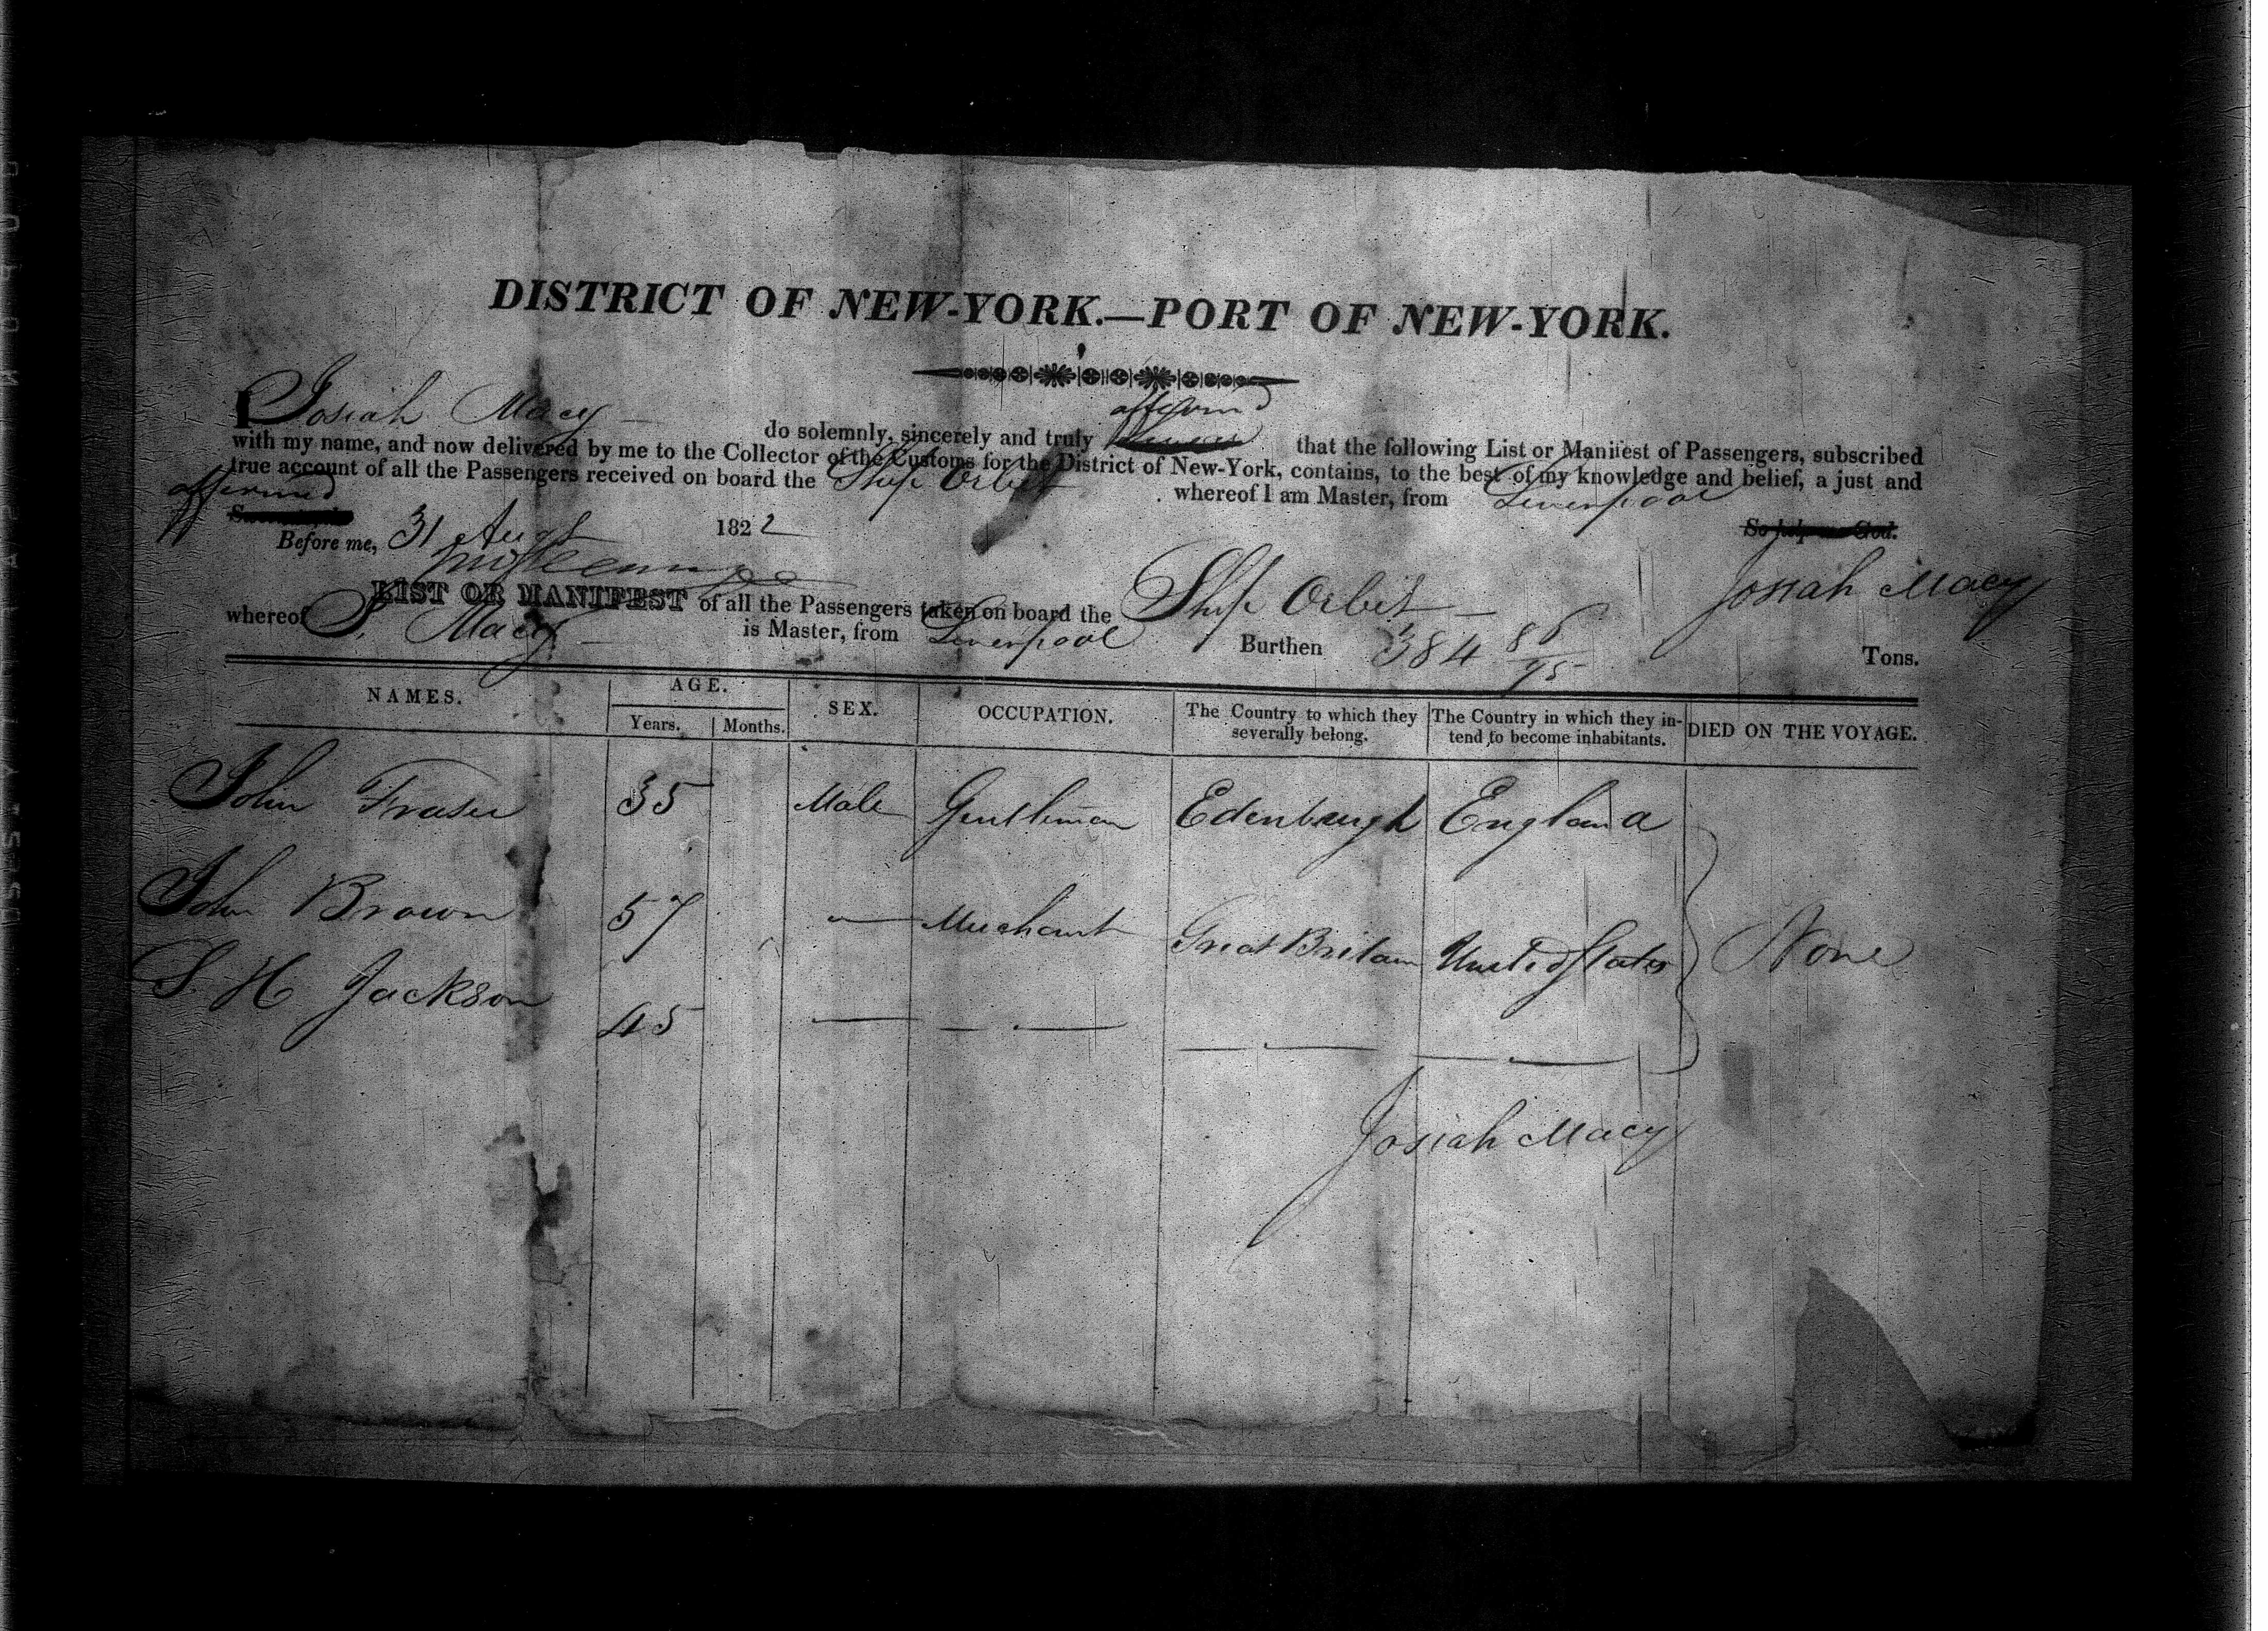 DISTRICT OF NEW-YORK.—PORT OF NEW-YORK.
I Josiah Macy do solemnly, sincerely and truly affirm that the following List or Manifest of Passengers, subscribed
with my name, and now delivered by me to the Collector of the Customs for the District of New-York, contains, to the best of my knowledge and belief, a just and
true account of all the Passengers received on board the Ship Orbit whereof I am Master, from Liverpool
affirmed
So help me God.
Before me, 31 Augt 1822
Josiah Macy
LIST OR MANIFEST of all the Passengers taken on board the Ship Orbit
whereof J. Macy is Master, from Liverpool Burthen 384 86/95 Tons.
NAMES. AGE. SEX. OCCUPATION. The Country to which they severally belong. The Country in which they intend to become inhabitants. DIED ON THE VOYAGE.
Years. Months.
John Fraser 35 Male Gentleman Edenburgh England
John Brown 57 — Merchant Great Britain United States None
S H Jackson 45 — — — — — — —
Josiah Macy